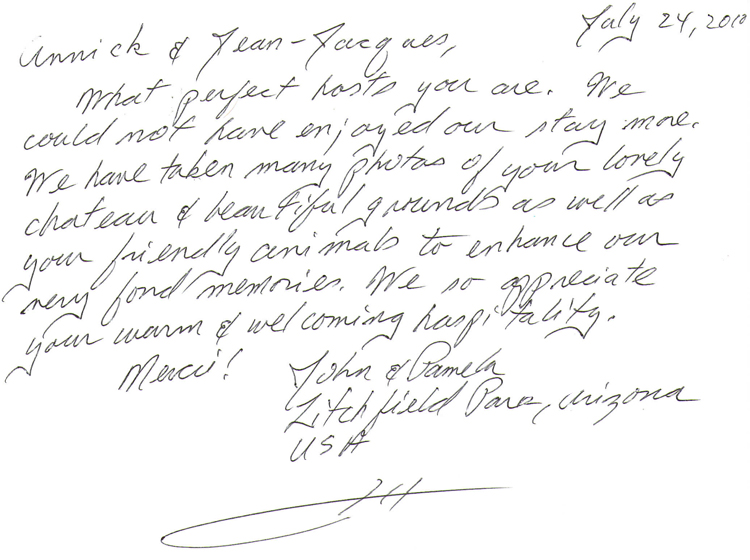 July 24, 2010
Annick & Jean-Jacques,
What perfect hosts you are. We
could not have enjoyed our stay more.
We have taken many photos of your lovely
chateau & beautiful grounds as well as
your friendly animals to enhance our
very fond memories. We so appreciate
your warm & welcoming hospitality.
Merci! John & Pamela
Litchfield Park, Arizona
USA